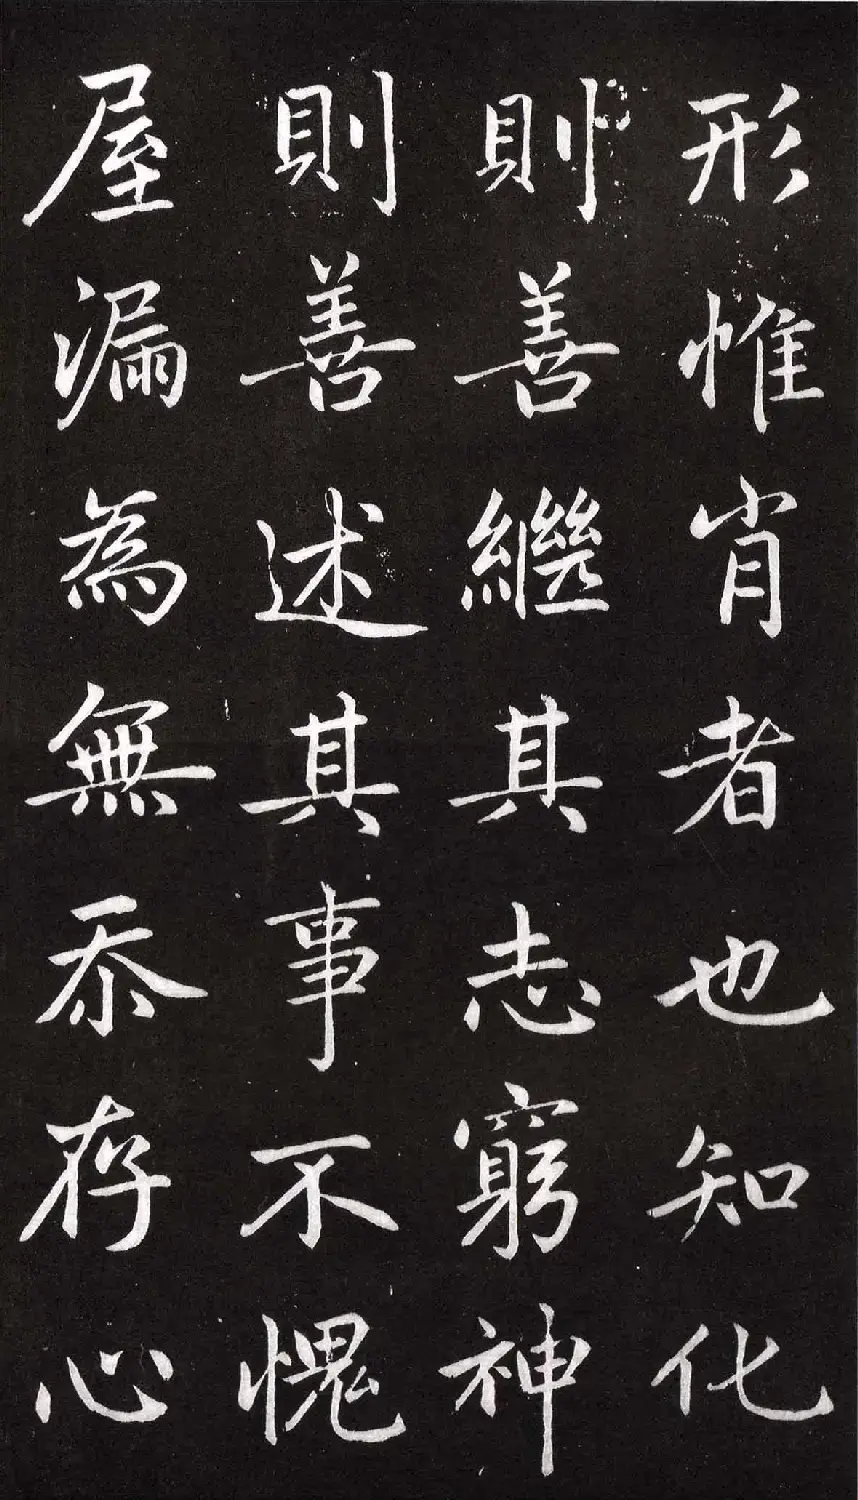 形惟肖者也知化
則善繼其志窮神
則善述其事不愧
屋漏為無忝存心